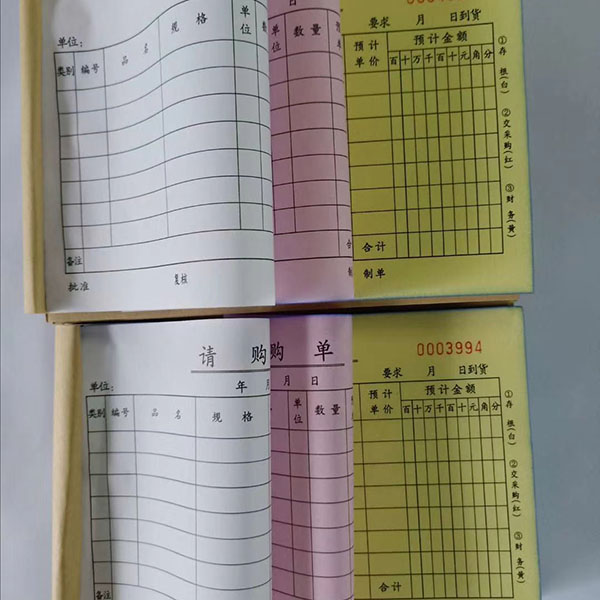 要求 月 日到货
单位：
类别 编号 品名 规格 单位
单位 数量
预计单价 预计金额
百 十 万 千 百 十 元 角 分
①存根(白)
②交采购(红)
③财务(黄)
合计
备注
批准 复核 制单
请购购单
0003994
单位： 年 月 日
要求 月 日到货
类别 编号 品名 规格
单位 数量
预计单价 预计金额
百 十 万 千 百 十 元 角 分
①存根(白)
②交采购(红)
③财务(黄)
合计
备注